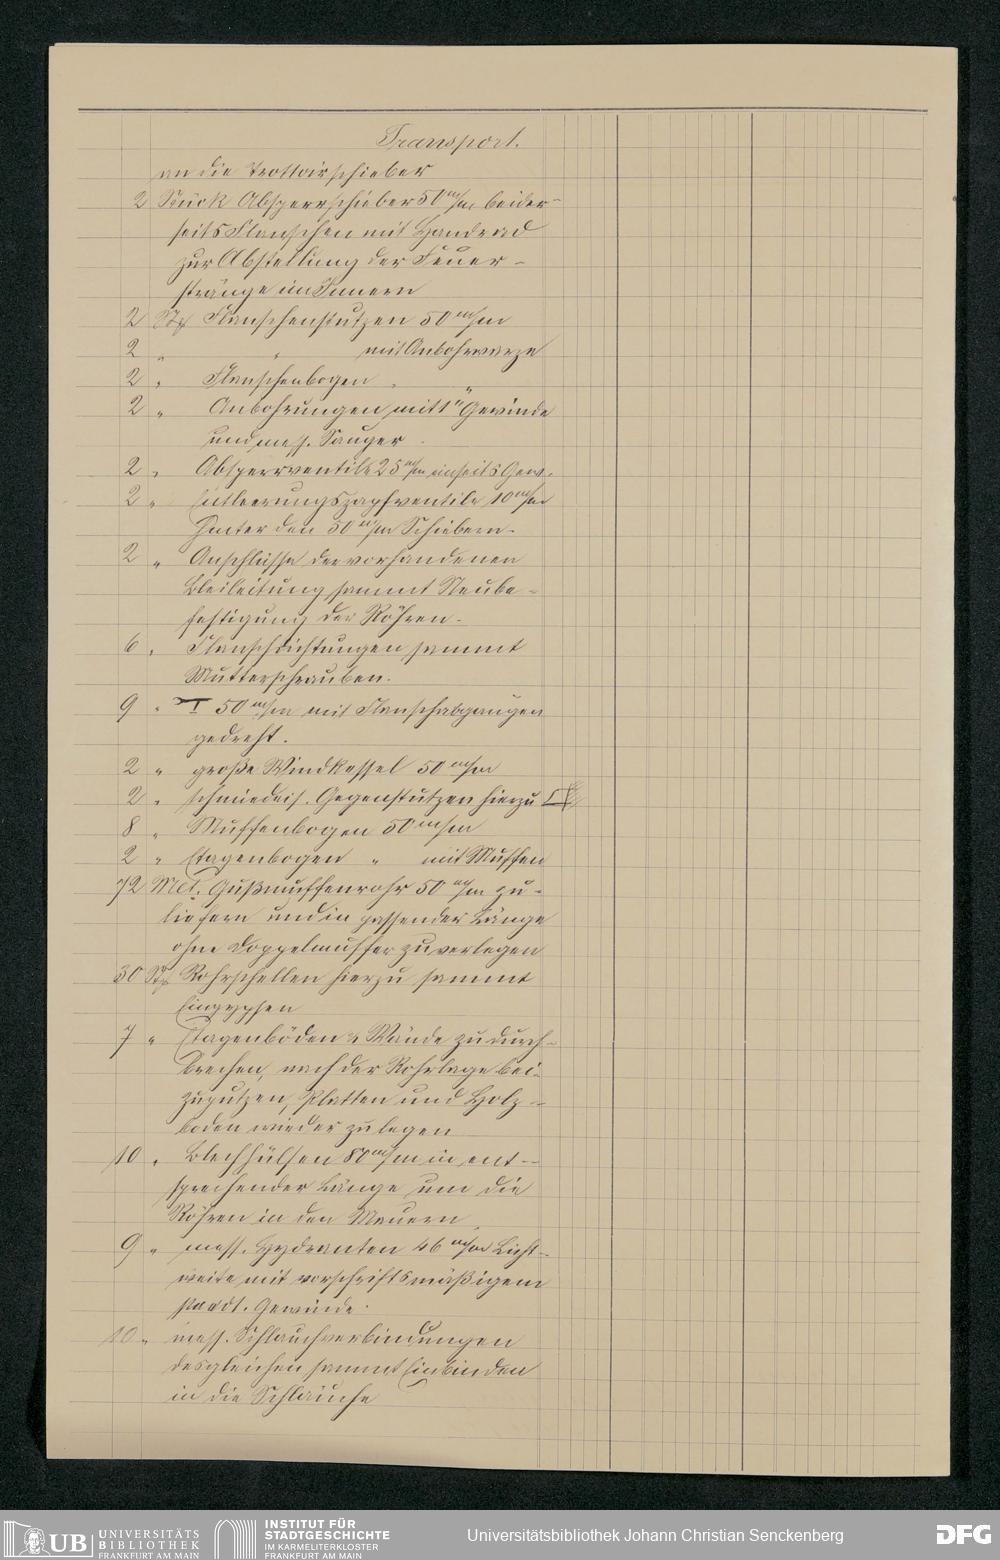 Transport.
an die Trottoirschieber
2 Stück Absperrschieber 50 m/m beider-
seits Flanschen mit Handrad
zur Abstellung der Feuer-
stränge im Innern
2 Stk Flanschenstutzen 50 m/m
2 " " mit Anbohrwarze
2 " Flanschenbogen " "
2 " Anbohrungen mit 1" Gewinde
und mess. Sauger
2 " Absperrventile 25 m/m einseits Gew.
2 " Entleerungszapfventile 10 m/m
hinter den 50 m/m Schiebern.
2 " Anschlüsse der vorhandenen
Bleileitung sammt Neube-
festigung der Röhren.
6 " Flanschdichtungen sammt
Mutterschrauben.
9 " T 50 m/m mit Flanschabgängen
gedreht.
2 " große Windkessel 50 m/m
2 " schmiedeis. Gegenstutzen hierzu
8 " Muffenbogen 50 m/m
2 " Etagenbogen " mit Muffen
72 Met. Gußmuffenrohr 50 m/m zu
liefern und in passender Länge
ohne Doppelmuffer zu verlegen
30 Stk Rohrschellen hierzu sammt
Eingypsen
7 " Etagenböden & Wände zu durch-
brechen, nach der Rohrlage bei-
zuputzen, Platten und Holz-
boden wieder zu legen
10 " Blechhülsen 80 m/m in ent-
sprechender Länge um die
Röhren in den Mauern
9 " mess. Hydranten 46 m/m Licht-
weite mit vorschriftsmäßigem
staedt. Gewinde.
10 " mess. Schlauchverbindungen
desgleichen sammt Einbinden
in die Schläuche
UB UNIVERSITÄTS
BIBLIOTHEK
FRANKFURT AM MAIN
INSTITUT FÜR
STADTGESCHICHTE
IM KARMELITERKLOSTER
FRANKFURT AM MAIN
Universitätsbibliothek Johann Christian Senckenberg
DFG